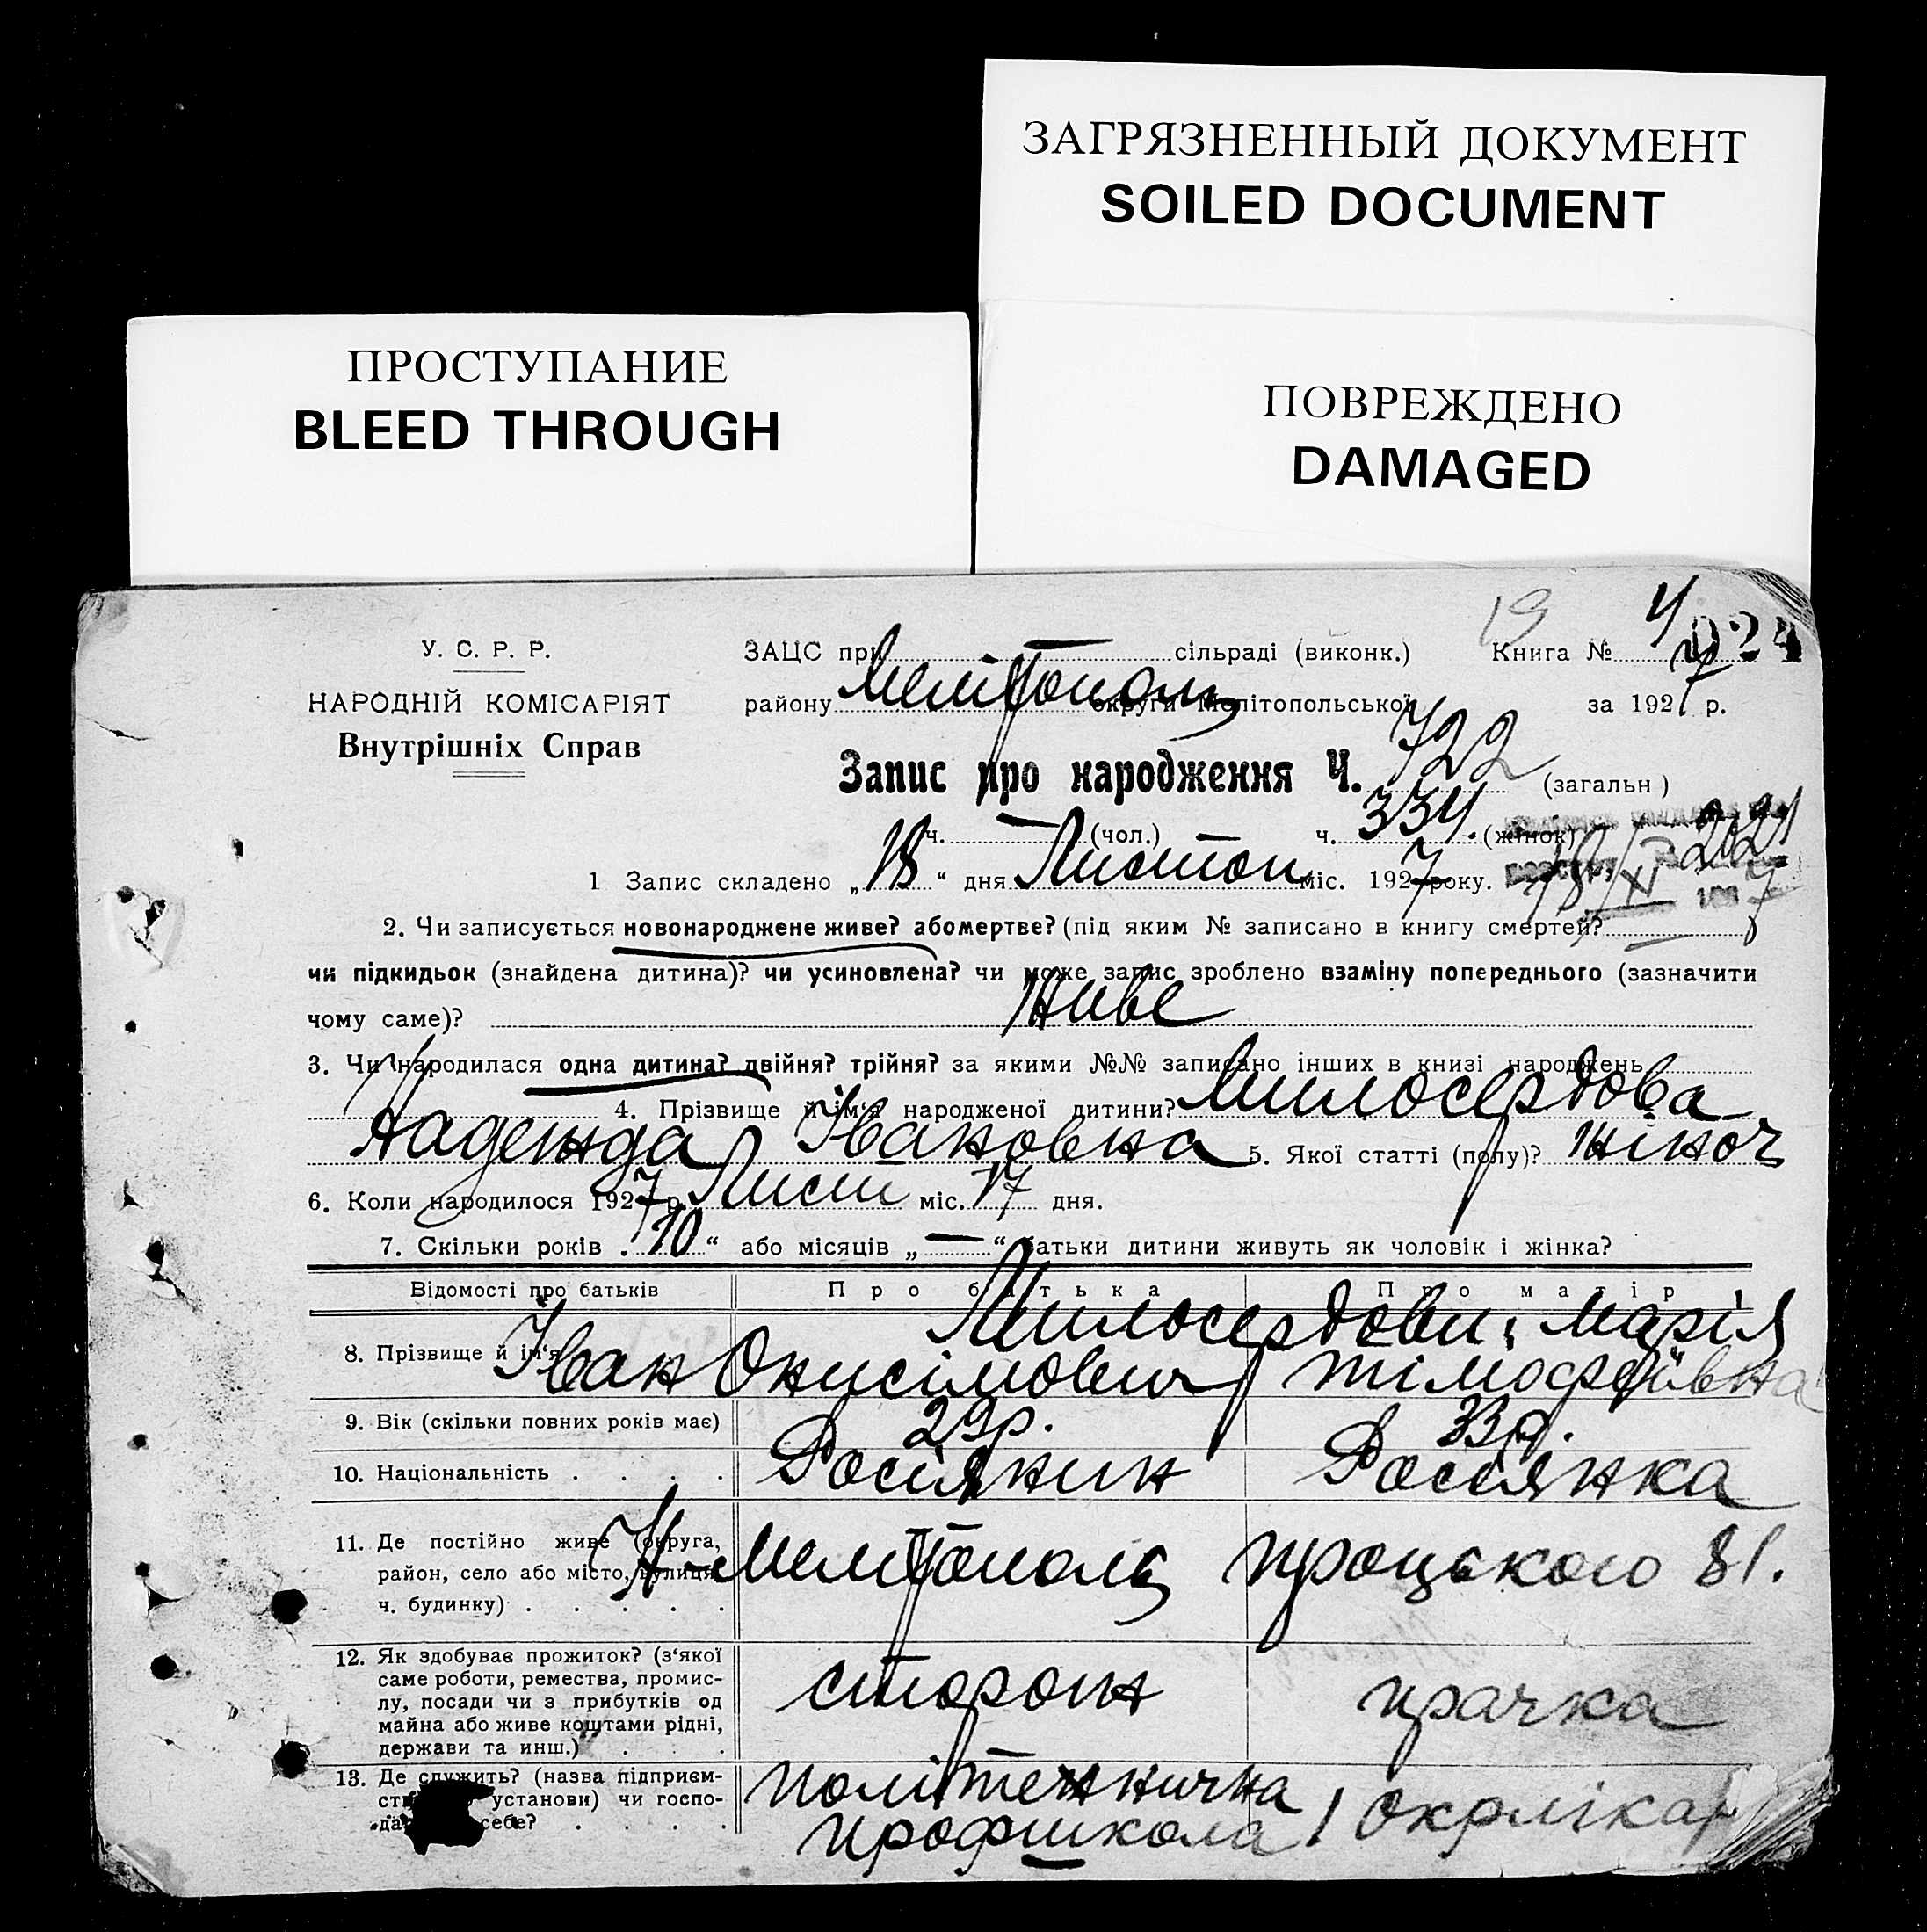 ЗАГРЯЗНЕННЫЙ ДОКУМЕНТ
SOILED DOCUMENT
ПРОСТУПАНИЕ
BLEED THROUGH
ПОВРЕЖДЕНО
DAMAGED
У. С. Р. Р.
НАРОДНІЙ КОМІСАРІЯТ
Внутрішніх Справ
19
ЗАЦС при — сільраді (виконк.) Книга № 4
024
району Мелітополь округи Мелітопольської за 1927 р.
Запис про народження Ч. 722 (загальн)
ч. — (чол.) ч. 334. (жінок)
1 Запис складено „18“ дня Листоп міс. 1927 року.
18/XI
2. Чи записується новонароджене живе? або мертве? (під яким № записано в книгу смертей?
чи підкидьок (знайдена дитина)? чи усиновлена? чи може запис зроблено взаміну попереднього (зазначити
чому саме)? Живе
3. Чи народилася одна дитина? двійня? трійня? за якими №№ записано інших в книзі народжень
4. Прізвище й ім‘я народженої дитини? Милосердова
Надежда Івановна 5. Якої статті (полу)? жіноч
6. Коли народилося 1927 р. Лист міс. 17 дня.
7. Скільки років „10“ або місяців „—“ батьки дитини живуть як чоловік і жінка?
Відомості про батьків Про батька Про матір
8. Прізвище й ім‘я Милосердови; Марія
Іван Онисімович Тімофеївна
9. Вік (скільки повних років має) 29р. 33р.
10. Національність . . . . Росіянин Росіянка
11. Де постійно живе (округа,
район, село або місто, вулиця,
ч. будинку) . . . . . Н-Мелітополь Троцького 81.
12. Як здобуває прожиток? (з‘якої
саме роботи, ремества, промис-
лу, посади чи з прибутків од
майна або живе коштами рідні,
держави та инш.) . . . сторож прачка
13. Де служить? (назва підприєм-
установи) чи госпо-
себе? . . . . політехнична
профшкола / Окрлікар